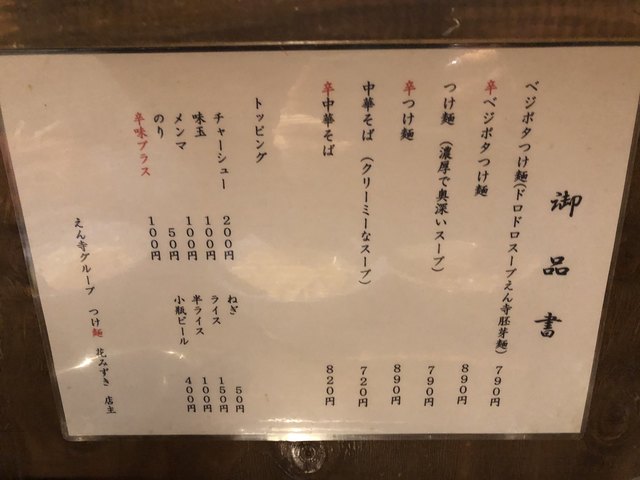 御品書
ベジポタつけ麺(ドロドロスープえん寺胚芽麺) 790円
辛ベジポタつけ麺 890円
つけ麺 (濃厚で奥深いスープ) 790円
辛つけ麺 890円
中華そば (クリーミーなスープ) 720円
辛中華そば 820円
トッピング
チャーシュー 200円
味玉 100円
メンマ 100円
のり 50円
辛味プラス 100円
ねぎ 50円
ライス 150円
半ライス 100円
小瓶ビール 400円
えん寺グループ つけ麺 花みずき 店主